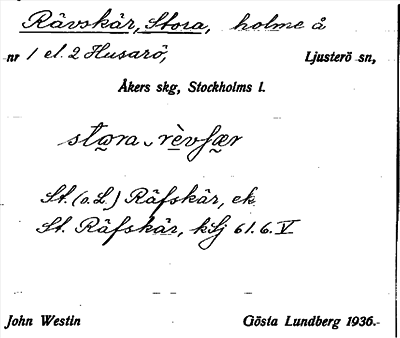 Rävskär, Stora, holme å
nr 1 el. 2 Husarö, Ljusterö sn,
Åkers skg, Stockholms l.
stora rèvʃær
St. (o. L.) Räfskär, ek
St. Räfskär, kSj 61.6. V
John Westin Gösta Lundberg 1936.